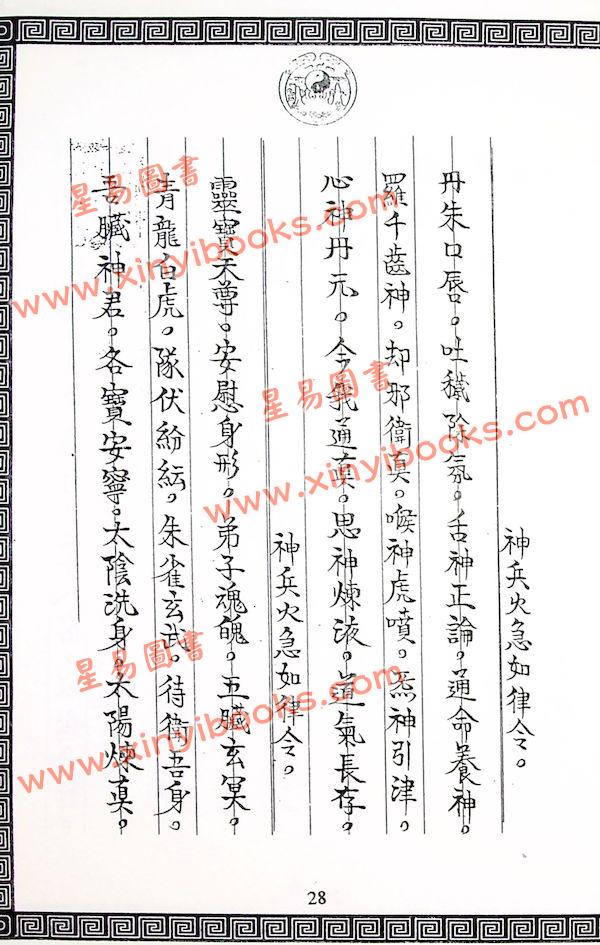 神兵火急如律令。
丹朱口唇。吐穢除氛。舌神正論。通命養神。
羅千齒神。却邪衛真。喉神虎噴。炁神引津。
心神丹元。令我通真。思神煉液。道氣長存。
神兵火急如律令。
靈寶天尊。安慰身形。弟子魂魄。五臟玄冥。
青龍白虎。隊伏紛紜。朱雀玄武。待衛吾身。
吾臟神君。各寶安寧。太陰洗身。太陽煉真。
28
星易圖書
www.xinyibooks.com
星易圖書
www.xinyibooks.com
星易圖書
www.xinyibooks.com